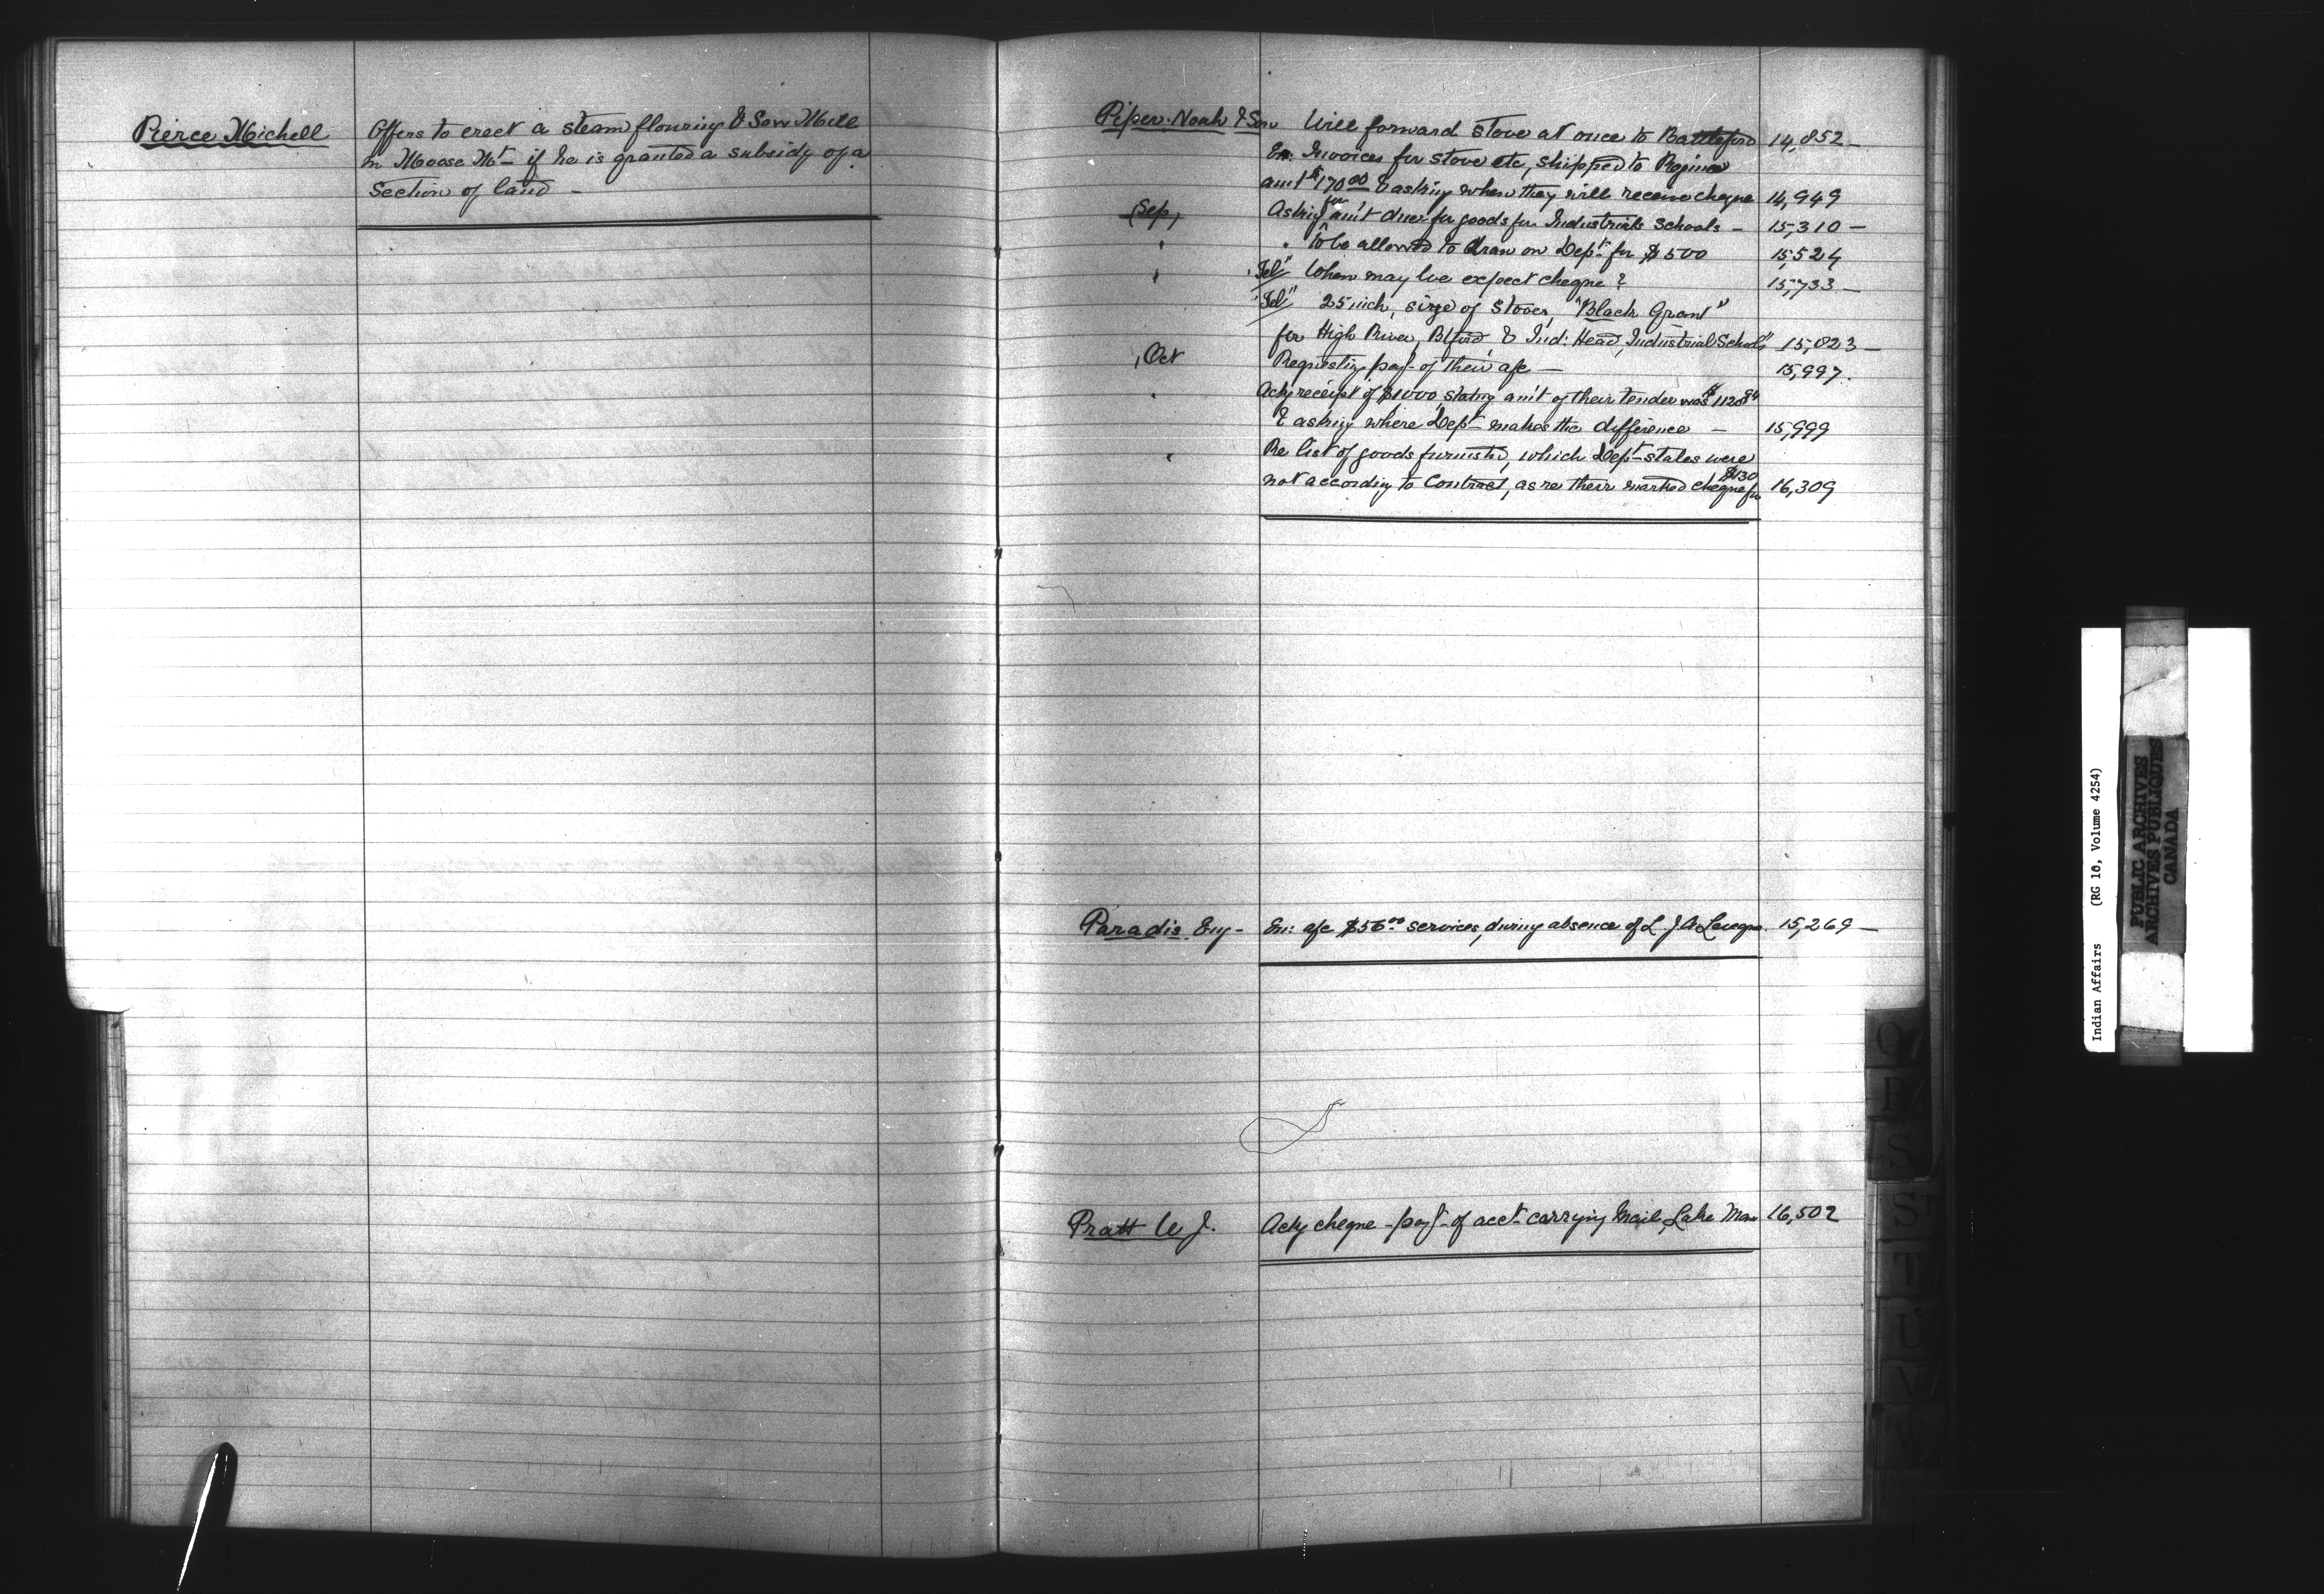 Pierce Michell
Offers to erect a steam flouring & Saw Mill
in Moose Mt. if he is granted a subsidy of a
Section of land -
Piper Noah & Son
Will forward stove at once to Battleford 14,852 -
En: Invoices for stove etc, shipped to Regina
amt $170.00 & asking when they will receive cheque 14,949
(Sep, Asking for am't due for goods for Industrials Schools - 15,310 -
" " To be allowed to draw on Dept. for $500 15,524
" "Tel" When may we expect cheque? 15,733 -
"Tel" 25 inch, size of Stoves, "Black Grant"
for High River, Bford, & Ind: Head, Industrial Schools 15,823 -
, Oct Requesting payt. of their a/c - 15,997.
" Ackg receipt of $1000, stating am't of their tender was $1120.84
& asking where Dept. makes the difference - 15,999
" Re list of goods furnished, which Dept. states were
not according to Contract, as re their marked cheque for $130 16,309
Paradis Euy - En: a/c $56.00 services, during absence of L. J. A. 15,269 -
Pratt W J. Ackg cheque - payt. of acct. carrying Mail, Lake Man 16,502
Q
R
S
ST
T
U
V
W
Indian Affairs (RG 10, Volume 4254)
PUBLIC ARCHIVES
ARCHIVES PUBLIQUES
CANADA